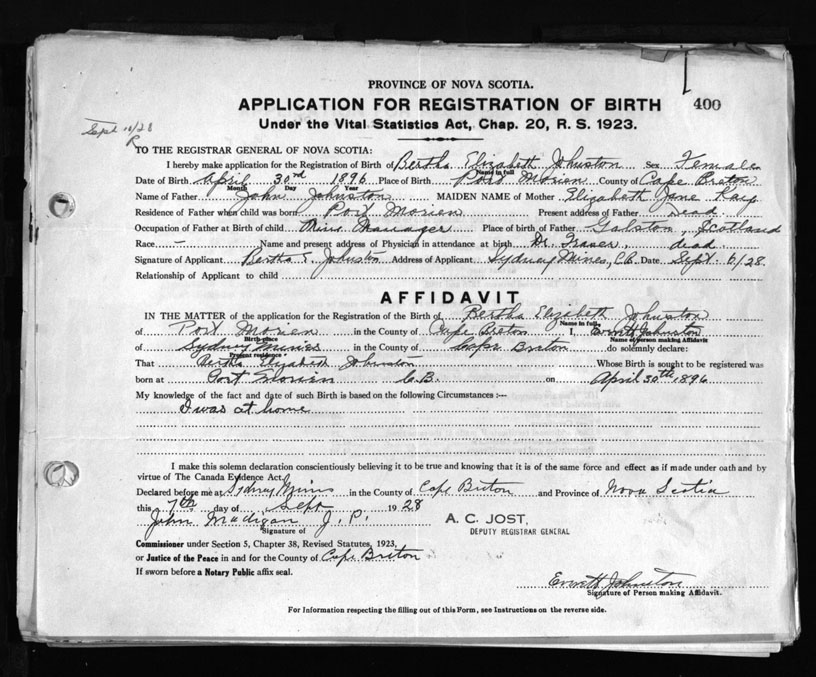 PROVINCE OF NOVA SCOTIA.
APPLICATION FOR REGISTRATION OF BIRTH 400
Under the Vital Statistics Act, Chap. 20, R. S. 1923.
Sept 10/28
R
TO THE REGISTRAR GENERAL OF NOVA SCOTIA:
I hereby make application for the Registration of Birth of Bertha Elizabeth Johnston Sex Female
Name in full
Date of Birth April 30 1896 Place of Birth Port Morien County of Cape Breton
Month Day Year
Name of Father John Johnston MAIDEN NAME of Mother Elizabeth Jane
Residence of Father when child was born Port Morien Present address of Father Dead
Occupation of Father at Birth of child Mine Manager Place of birth of Father Galston, Scotland
Race – Name and present address of Physician in attendance at birth Dr. Fraser, dead
Signature of Applicant Bertha E. Johnston Address of Applicant Sydney Mines, C.B. Date Sept. 6/28.
Relationship of Applicant to child
AFFIDAVIT
IN THE MATTER of the application for the Registration of the Birth of Bertha Elizabeth Johnston
Name in full
of Port Morien in the County of Cape Breton I, Everett Johnston
Birth-place Name of person making Affidavit
of Sydney Mines in the County of Cape Breton do solemnly declare:
Present residence
That Bertha Elizabeth Johnston Whose Birth is sought to be registered was
born at Port Morien C.B. on April 30th 1896
My knowledge of the fact and date of such Birth is based on the following Circumstances :—
I was at home
I make this solemn declaration conscientiously believing it to be true and knowing that it is of the same force and effect as if made under oath and by
virtue of The Canada Evidence Act.
Declared before me at Sydney Mines in the County of Cape Breton and Province of Nova Scotia
this 7th day of Sept 1928
John Madigan J. P.
Signature of
A. C. JOST,
DEPUTY REGISTRAR GENERAL
Commissioner under Section 5, Chapter 38, Revised Statutes, 1923,
or Justice of the Peace in and for the County of Cape Breton
If sworn before a Notary Public affix seal.
Everett Johnston
Signature of Person making Affidavit.
For Information respecting the filling out of this Form, see Instructions on the reverse side.